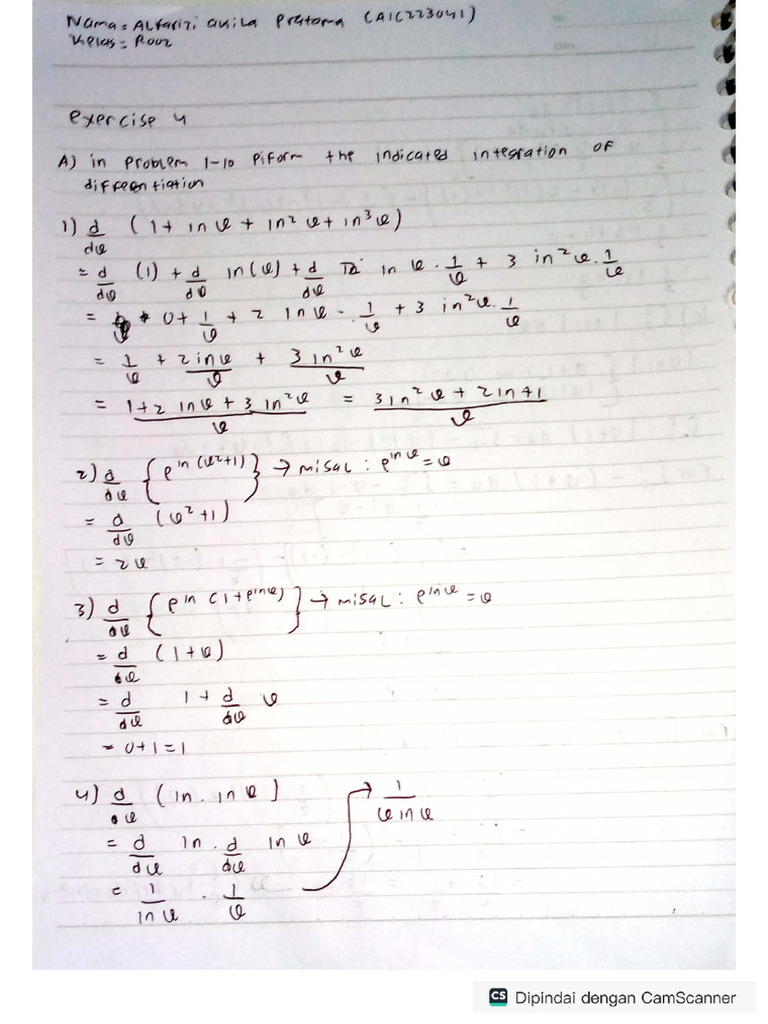 Nama = Alfarizi aulia Pratama (A1C223041)
Kelas = R002
exercise 4
A) in Problem 1-10 Piform the indicated integration of
differentiation
1) d/dv (1 + ln v + ln² v + ln³ v)
= d/dv (1) + d/dv ln(v) + d/dv ln v . 1/v + 3 ln² v . 1/v
= 0 + 1/v + 2 ln v . 1/v + 3 ln² v . 1/v
= 1/v + 2 ln v/v + 3 ln² v/v
= 1 + 2 ln v + 3 ln² v/v = 3 ln² v + 2 ln + 1/v
2) d/dv { e^ln (v²+1) } → misal : e^ln v = v
= d/dv (v² + 1)
= 2v
3) d/dv { e^ln (1 + e^ln v) } → misal : e^ln v = v
= d/dv (1 + v)
= d/dv 1 + d/dv v
= 0 + 1 = 1
4) d/dv (ln . ln v) → 1/v ln v
= d/dv ln . d/dv ln v
= 1/ln v . 1/v
CS Dipindai dengan CamScanner